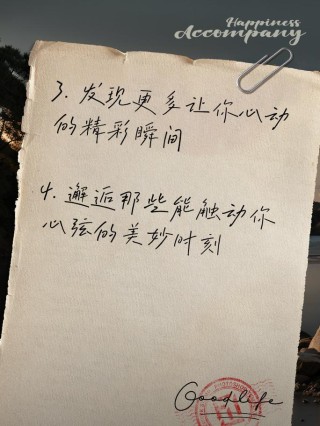 Happiness
Accompany
3、发现更多让你心动
的精彩瞬间
4、邂逅那些能触动你
心弦的美妙时刻
Goodlife